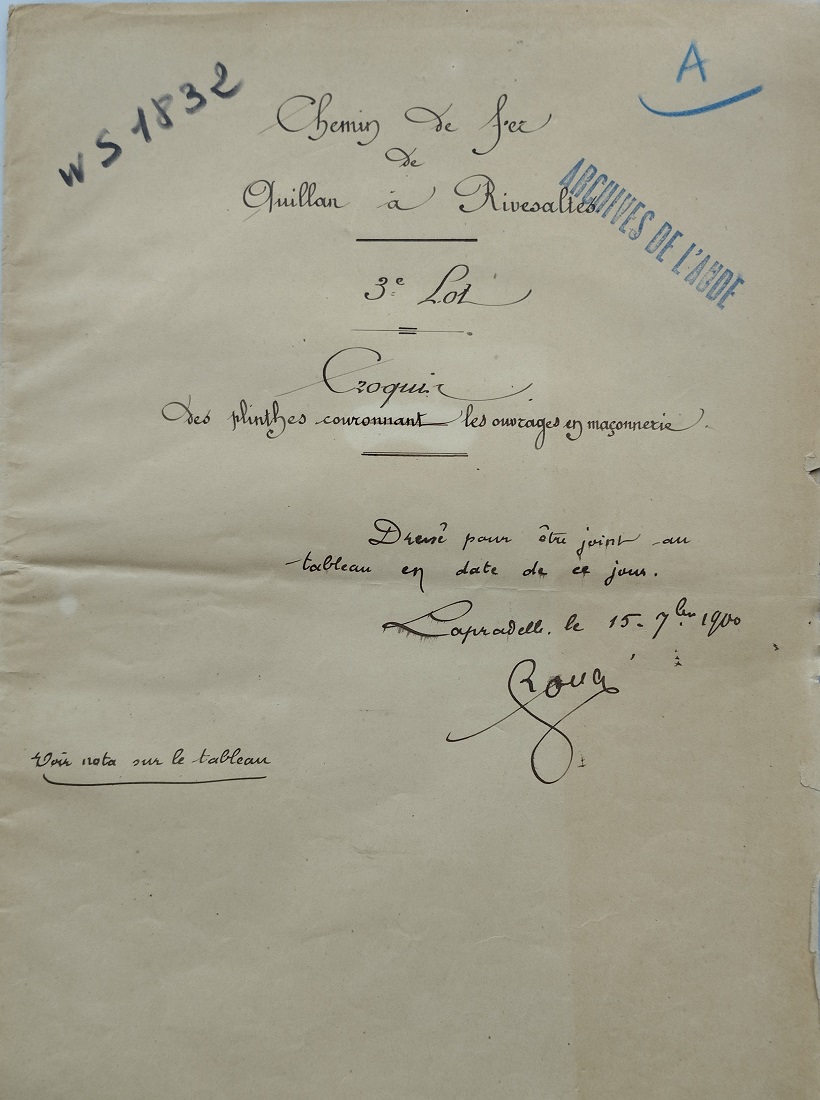 WS 1832
A
Chemin de fer
de
Quillan à Rivesaltes
ARCHIVES DE L'AUDE
3e Lot
Croquis
des plinthes couronnant les ouvrages en maçonnerie.
Dressé pour être joint au
tableau en date de ce jour.
Lapradelle, le 15 - 7bre 1900
Voir nota sur le tableau